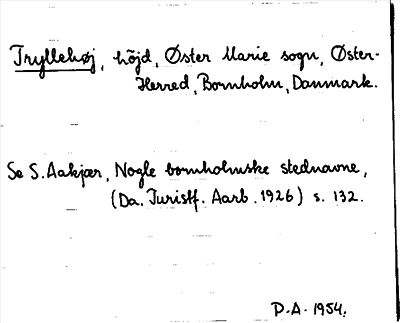 Tryllehøj, höjd, Øster Marie sogn, Øster-
Herred, Bornholm, Danmark.
Se S. Aakjær, Nogle bornholmske stednavne,
(Da. Turistf. Aarb. 1926) s. 132.
P.A. 1954.